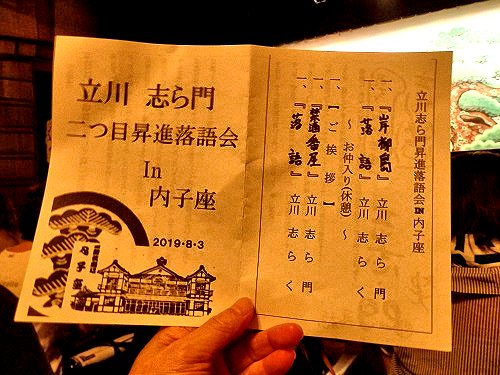 立川 志ら門
二つ目昇進落語会
In
内子座
2019・8・3
内子座
立川志ら門昇進落語会IN内子座
一、『岸柳島』 立川 志ら門
一、『落 語』 立川 志らく
～ お仲入り(休憩) ～
一、【ご挨拶】
一、『禁酒番屋』 立川 志ら門
一、『落 語』 立川 志らく